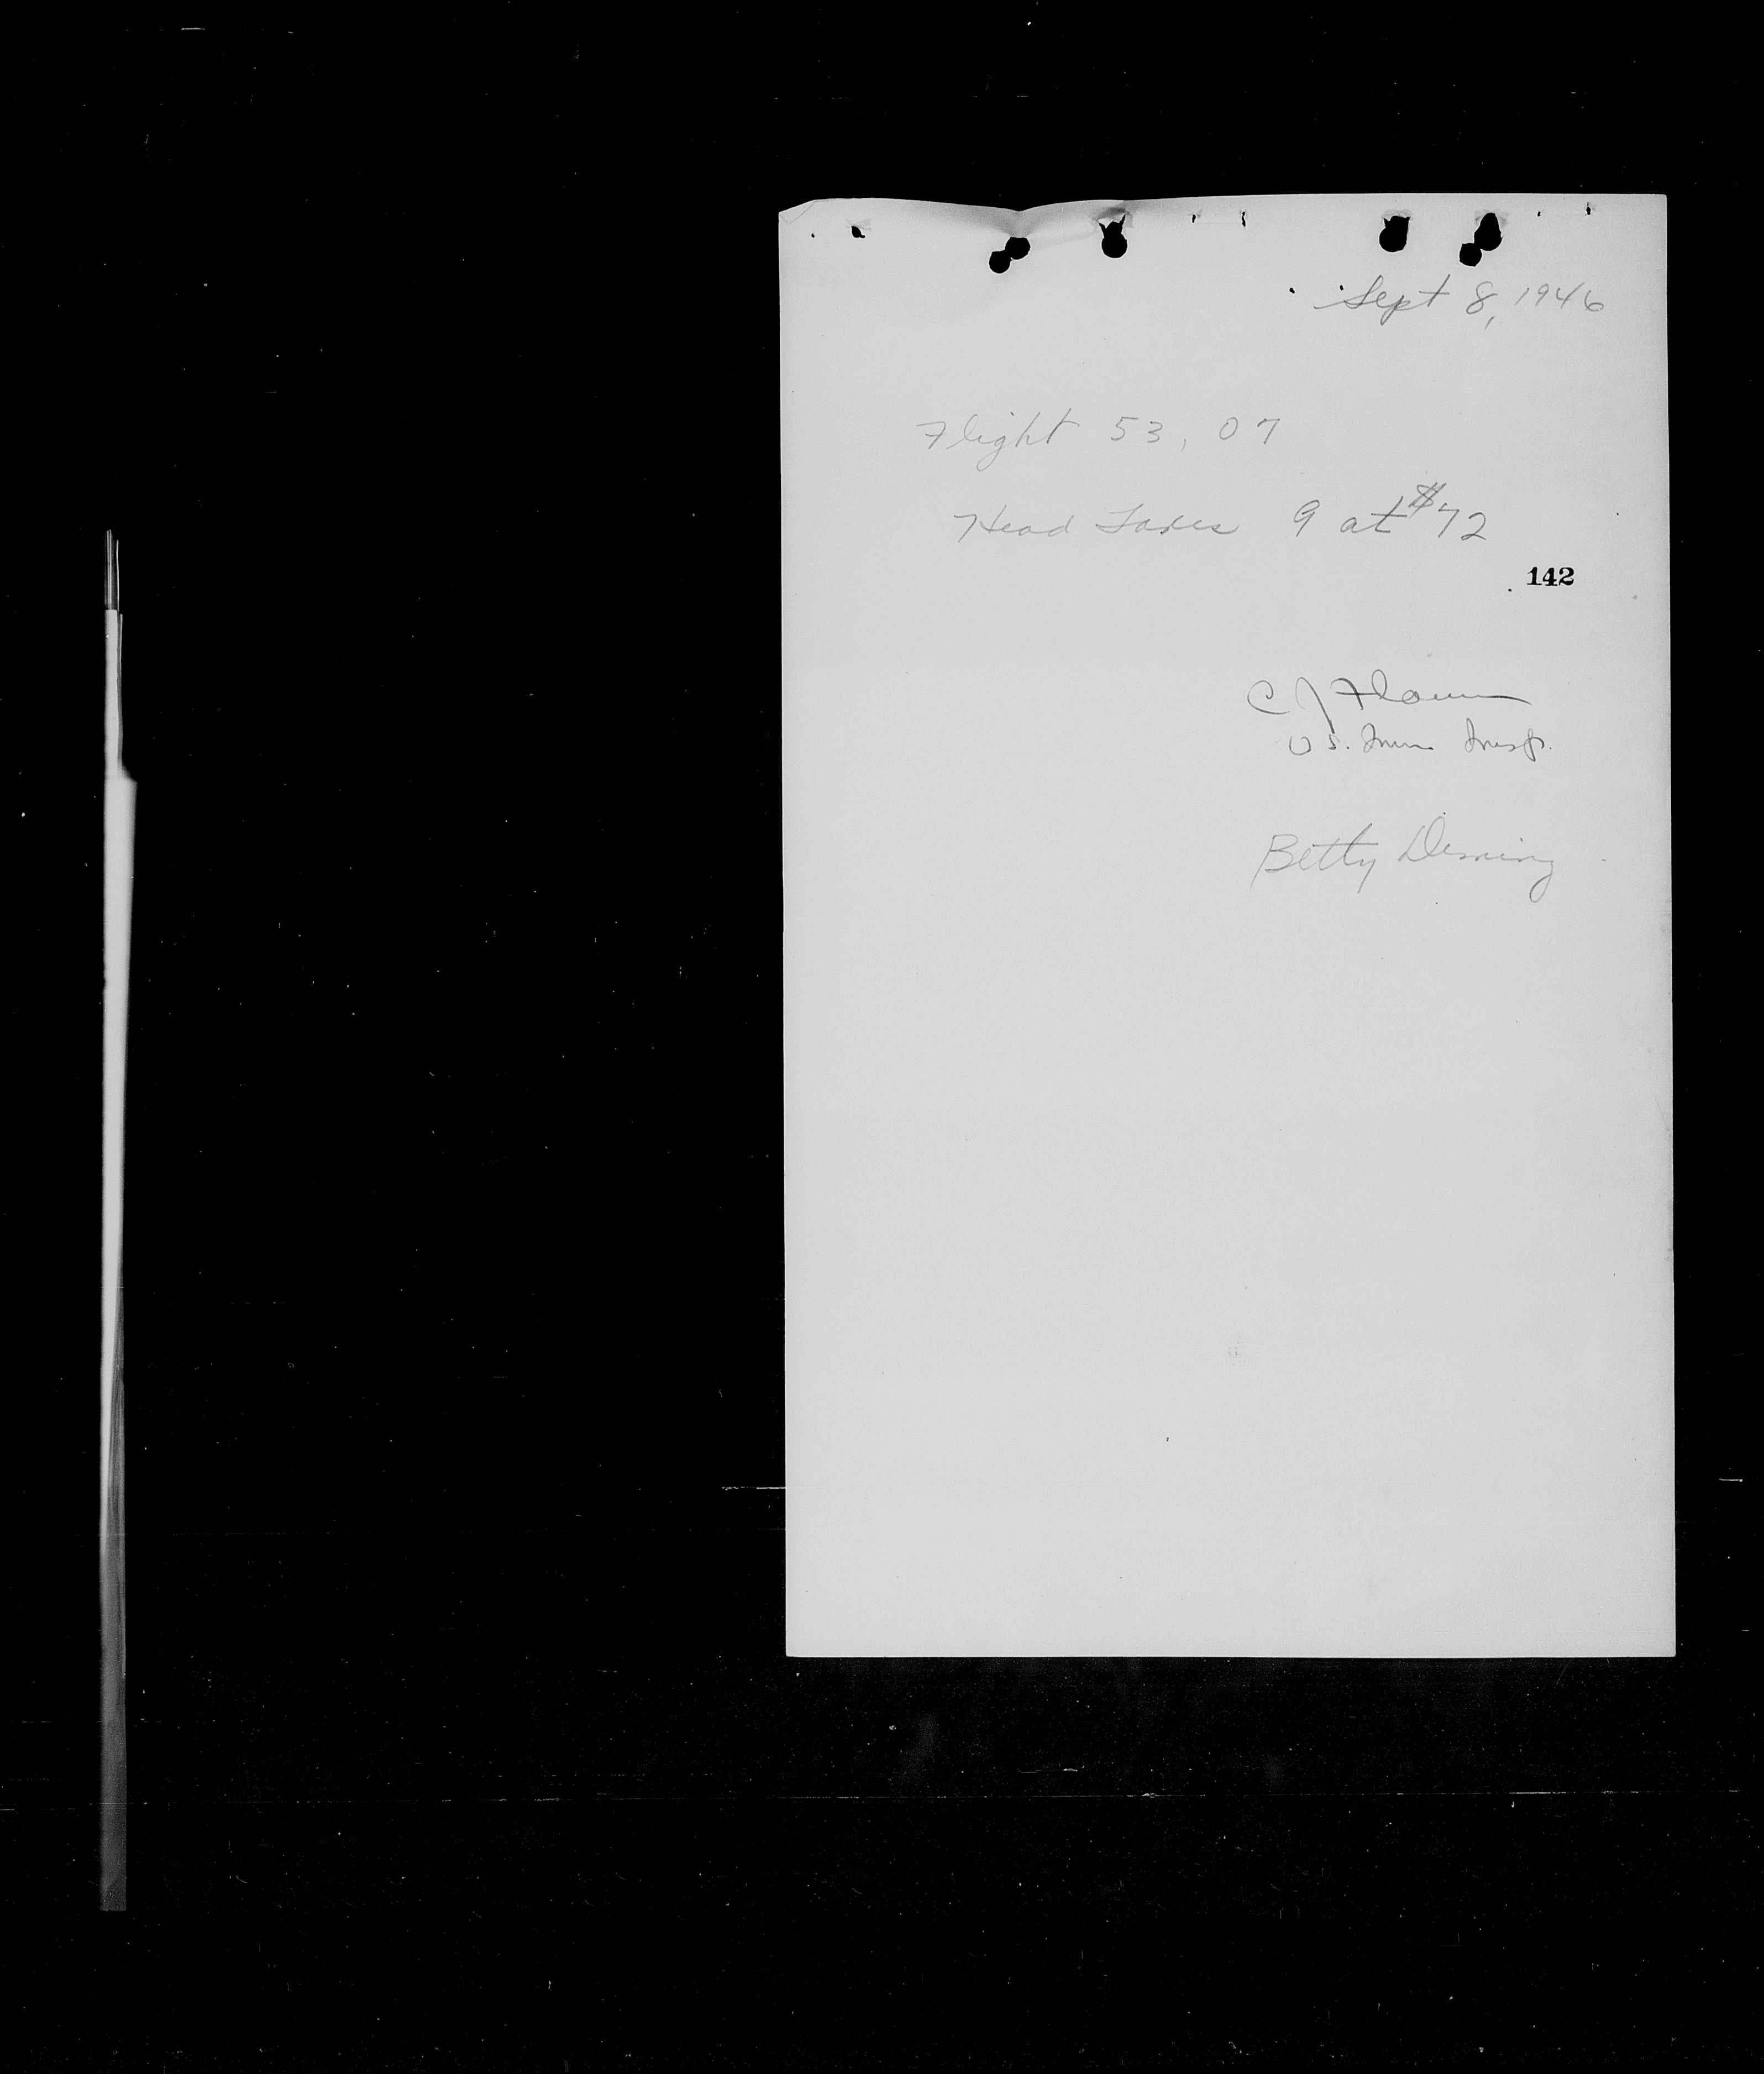 Sept 8, 1946
Flight 53, 07
Head Taxes 9 at $72
142
C J
U S. Imm Insp.
Betty Deming